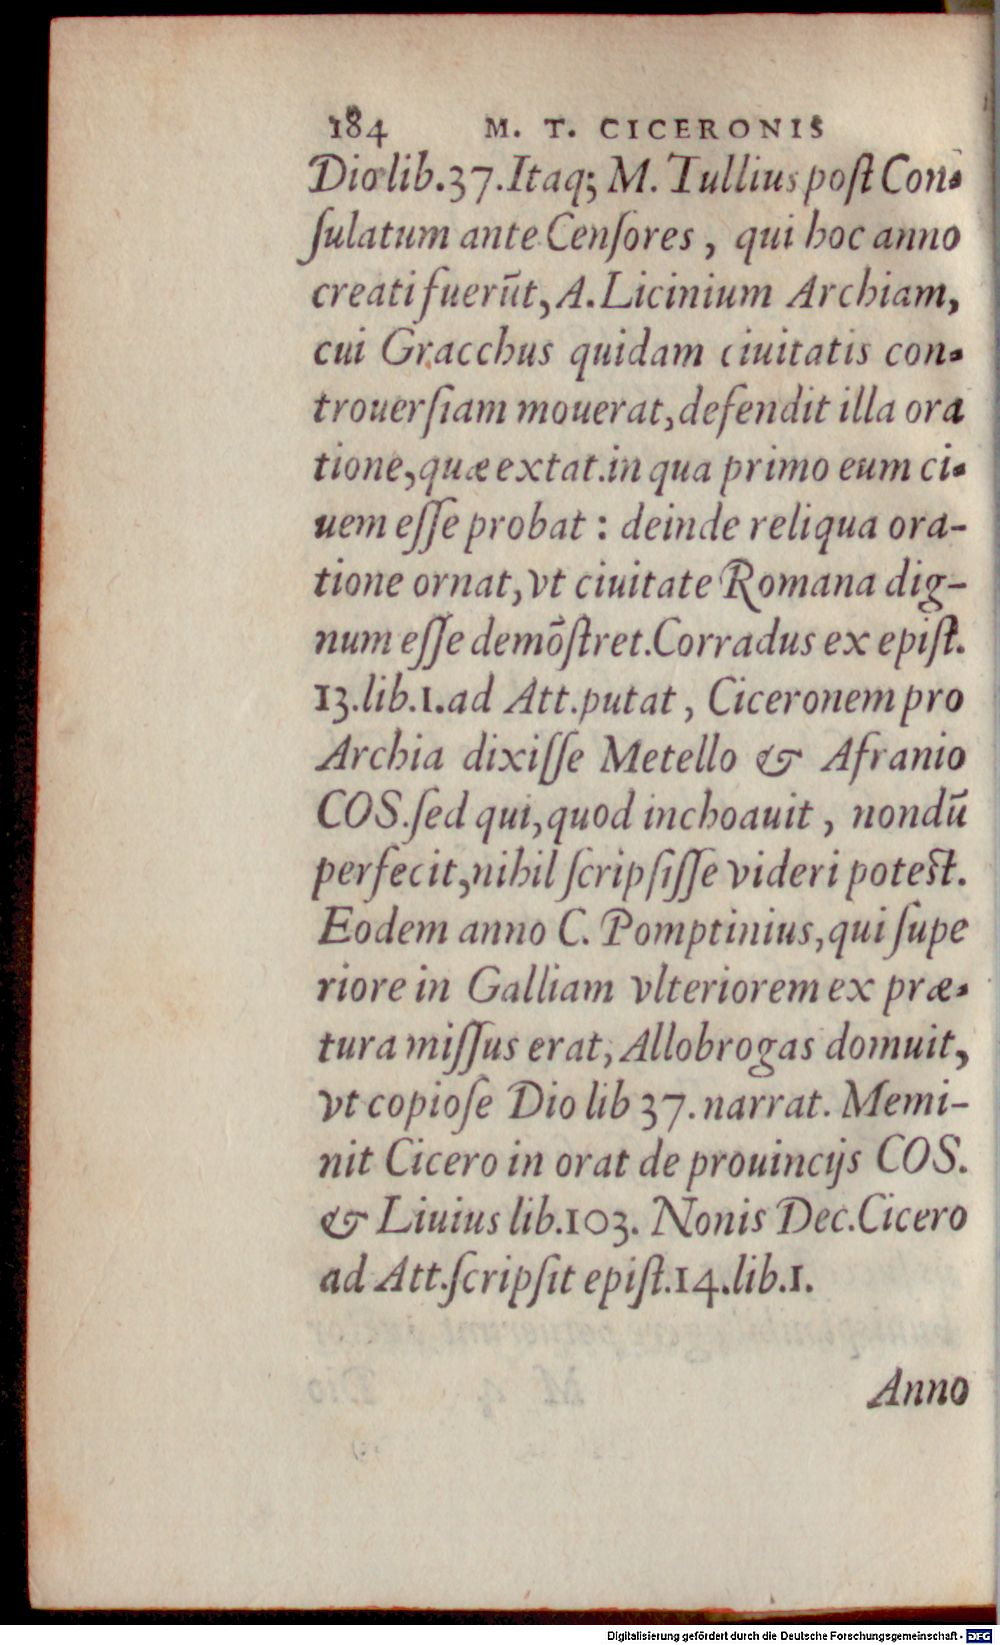 184 M. T. CICERONIS
Dio lib.37. Itaq; M. Tullius post Con-
ſulatum ante Cenſores, qui hoc anno
creati fuerūt, A. Licinium Archiam,
cui Gracchus quidam ciuitatis con-
trouerſiam mouerat, defendit illa ora
tione, quæ extat. in qua primo eum ci-
uem eſſe probat: deinde reliqua ora-
tione ornat, vt ciuitate Romana dig-
num eſſe demōſtret. Corradus ex epiſt.
13. lib. 1. ad Att. putat, Ciceronem pro
Archia dixiſſe Metello & Afranio
COS. ſed qui, quod inchoauit, nondū
perfecit, nihil ſcripſiſſe videri potest.
Eodem anno C. Pomptinius, qui ſupe
riore in Galliam vlteriorem ex præ-
tura miſſus erat, Allobrogas domuit,
vt copioſe Dio lib 37. narrat. Memi-
nit Cicero in orat de prouincijs COS.
& Liuius lib. 103. Nonis Dec. Cicero
ad Att. ſcripſit epiſt. 14. lib. 1.
Anno
Digitalisierung gefördert durch die Deutsche Forschungsgemeinschaft - DFG